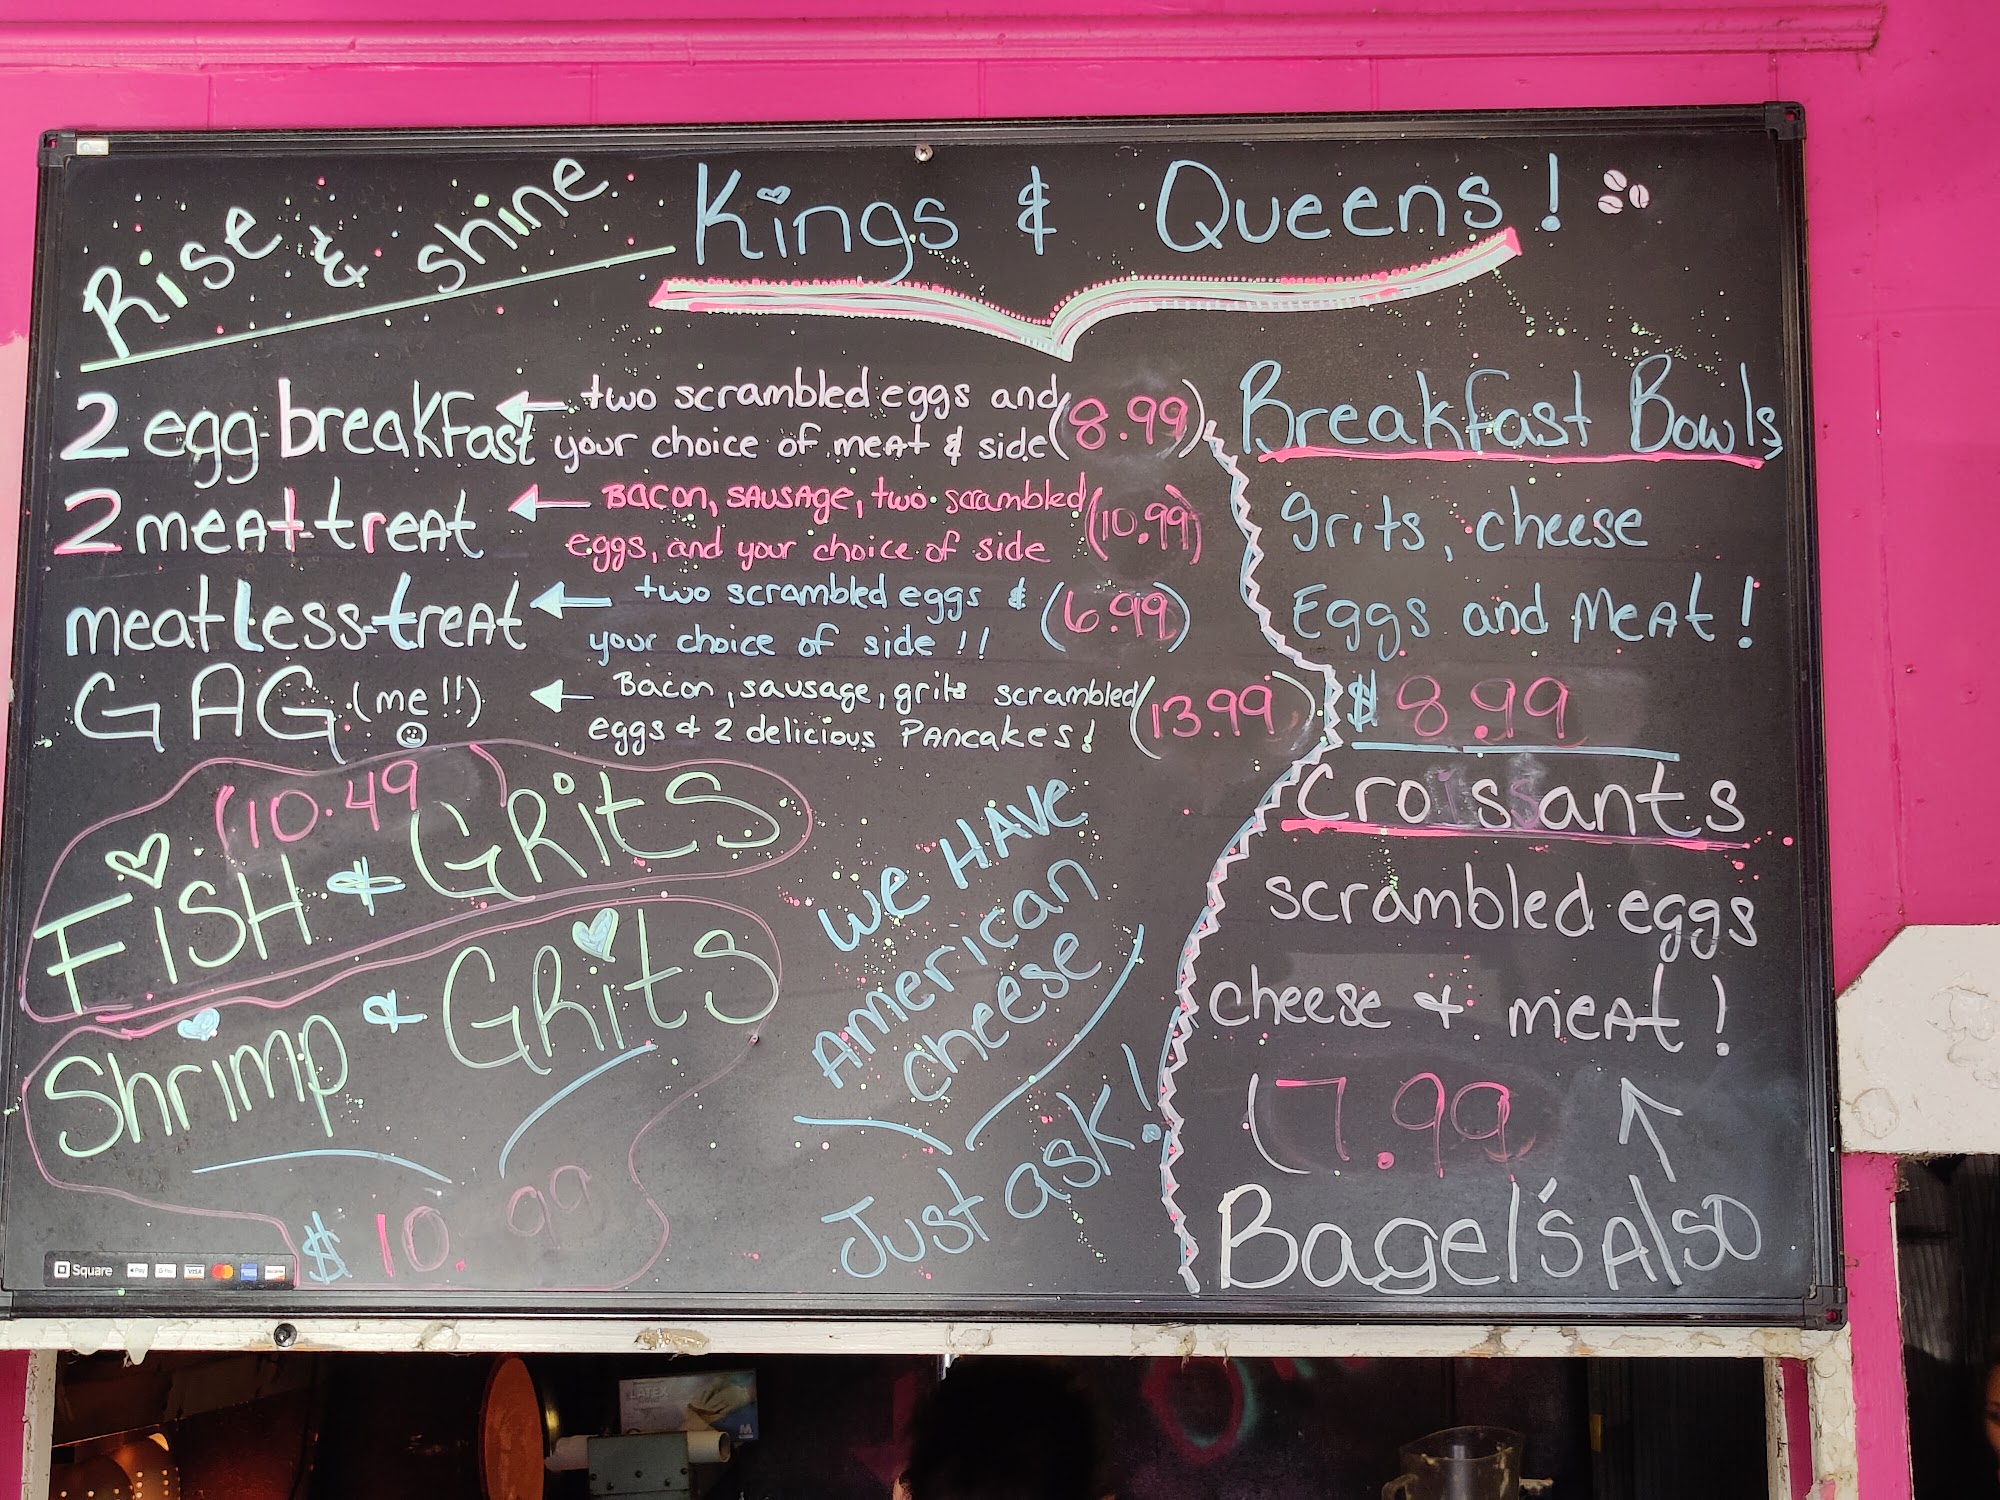 Rise & shine Kings & Queens!
2 egg breakfast two scrambled eggs and (8.99)
your choice of meat & side
2 meat-treat Bacon, sausage, two scrambled (10.99)
eggs, and your choice of side
meatless-treat two scrambled eggs & (6.99)
your choice of side !!
GAG (me!!) Bacon, sausage, grits scrambled (13.99)
eggs & 2 delicious Pancakes!
(10.49)
Fish & Grits
Shrimp & Grits
$10.99
We HAVE
American
cheese
Just ask!
Breakfast Bowls
grits, cheese
Eggs and Meat!
$8.99
Croissants
scrambled eggs
cheese & meat!
(7.99
Bagel's Also
Square Pay G Pay VISA
LATEX